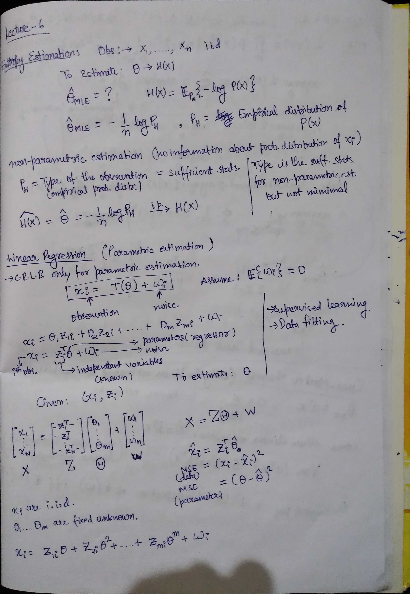 Lecture-6
Entropy Estimation: Obs: → x₁, ..., xₙ iid
To Estimate: θ → H(x)
θ̂_MLE = ? H(x) = E_Pₓ{-log P(x)}
θ̂_MLE = -1/n log P_H , P_H = Empirical distribution of P(x)
non-parametric estimation (no information about prob. distribution of xᵢ)
P_H = Type of the observation = sufficient stats.
(empirical prob. distri.)
[Type is the suff. stats for non-parametric est. but not minimal
Ĥ(x) = θ̂ = -1/n log P_H → H(x)
Linear Regression (Parametric estimation)
→ C.R.L.B only for parametric estimation.
xᵢ = T(θ) + wᵢ Assume: E{wᵢ} = 0
observation noise
→ Supervised learning
→ Data fitting.
xᵢ = θ₁z₁ᵢ + θ₂z₂ᵢ + ... + θₘzₘᵢ + wᵢ
→ parameters (regressor)
xᵢ = zᵢᵀθ + wᵢ → noise
→ independent variables
(known)
To estimate: θ
Given: (xᵢ, zᵢ)
[x₁ ⋮ xₙ] = [-z₁ᵀ- ⋮ -zₙᵀ-] [θ₁ ⋮ θₘ] + [w₁ ⋮ wₘ]
X Z Θ W
X = ZΘ + W
x̂ᵢ = zᵢᵀθ̂
MSE (data) = (xᵢ - x̂ᵢ)²
MSE (parameter) = (θ - θ̂)²
xᵢ are i.i.d.
θ₁ ... θₘ are fixed unknown.
xᵢ = z₁ᵢθ + z₂ᵢθ² + ... + zₘᵢθᵐ + wᵢ